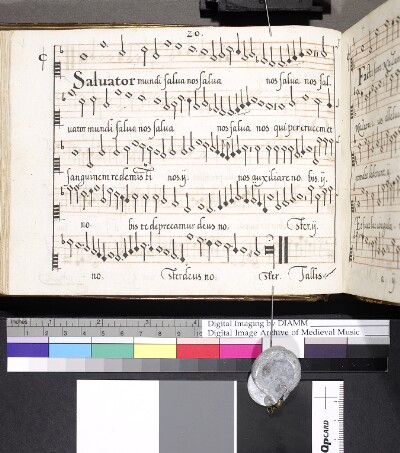 20.
Saluator mundi salua nos salua nos salua nos sal.
uator mundi salua nos salua nos salua nos qui per crucem et
sanguinem redemisti nos .ij. nos auxiliare no. bis .ij.
no. bis te deprecamur deus no. ster .ij.
no. ster deus no. ster. Tallis
inches 1 2 3 4 5 6 7 8 9 10
Digital Imaging by DIAMM
Digital Image Archive of Medieval Music
QPCARD